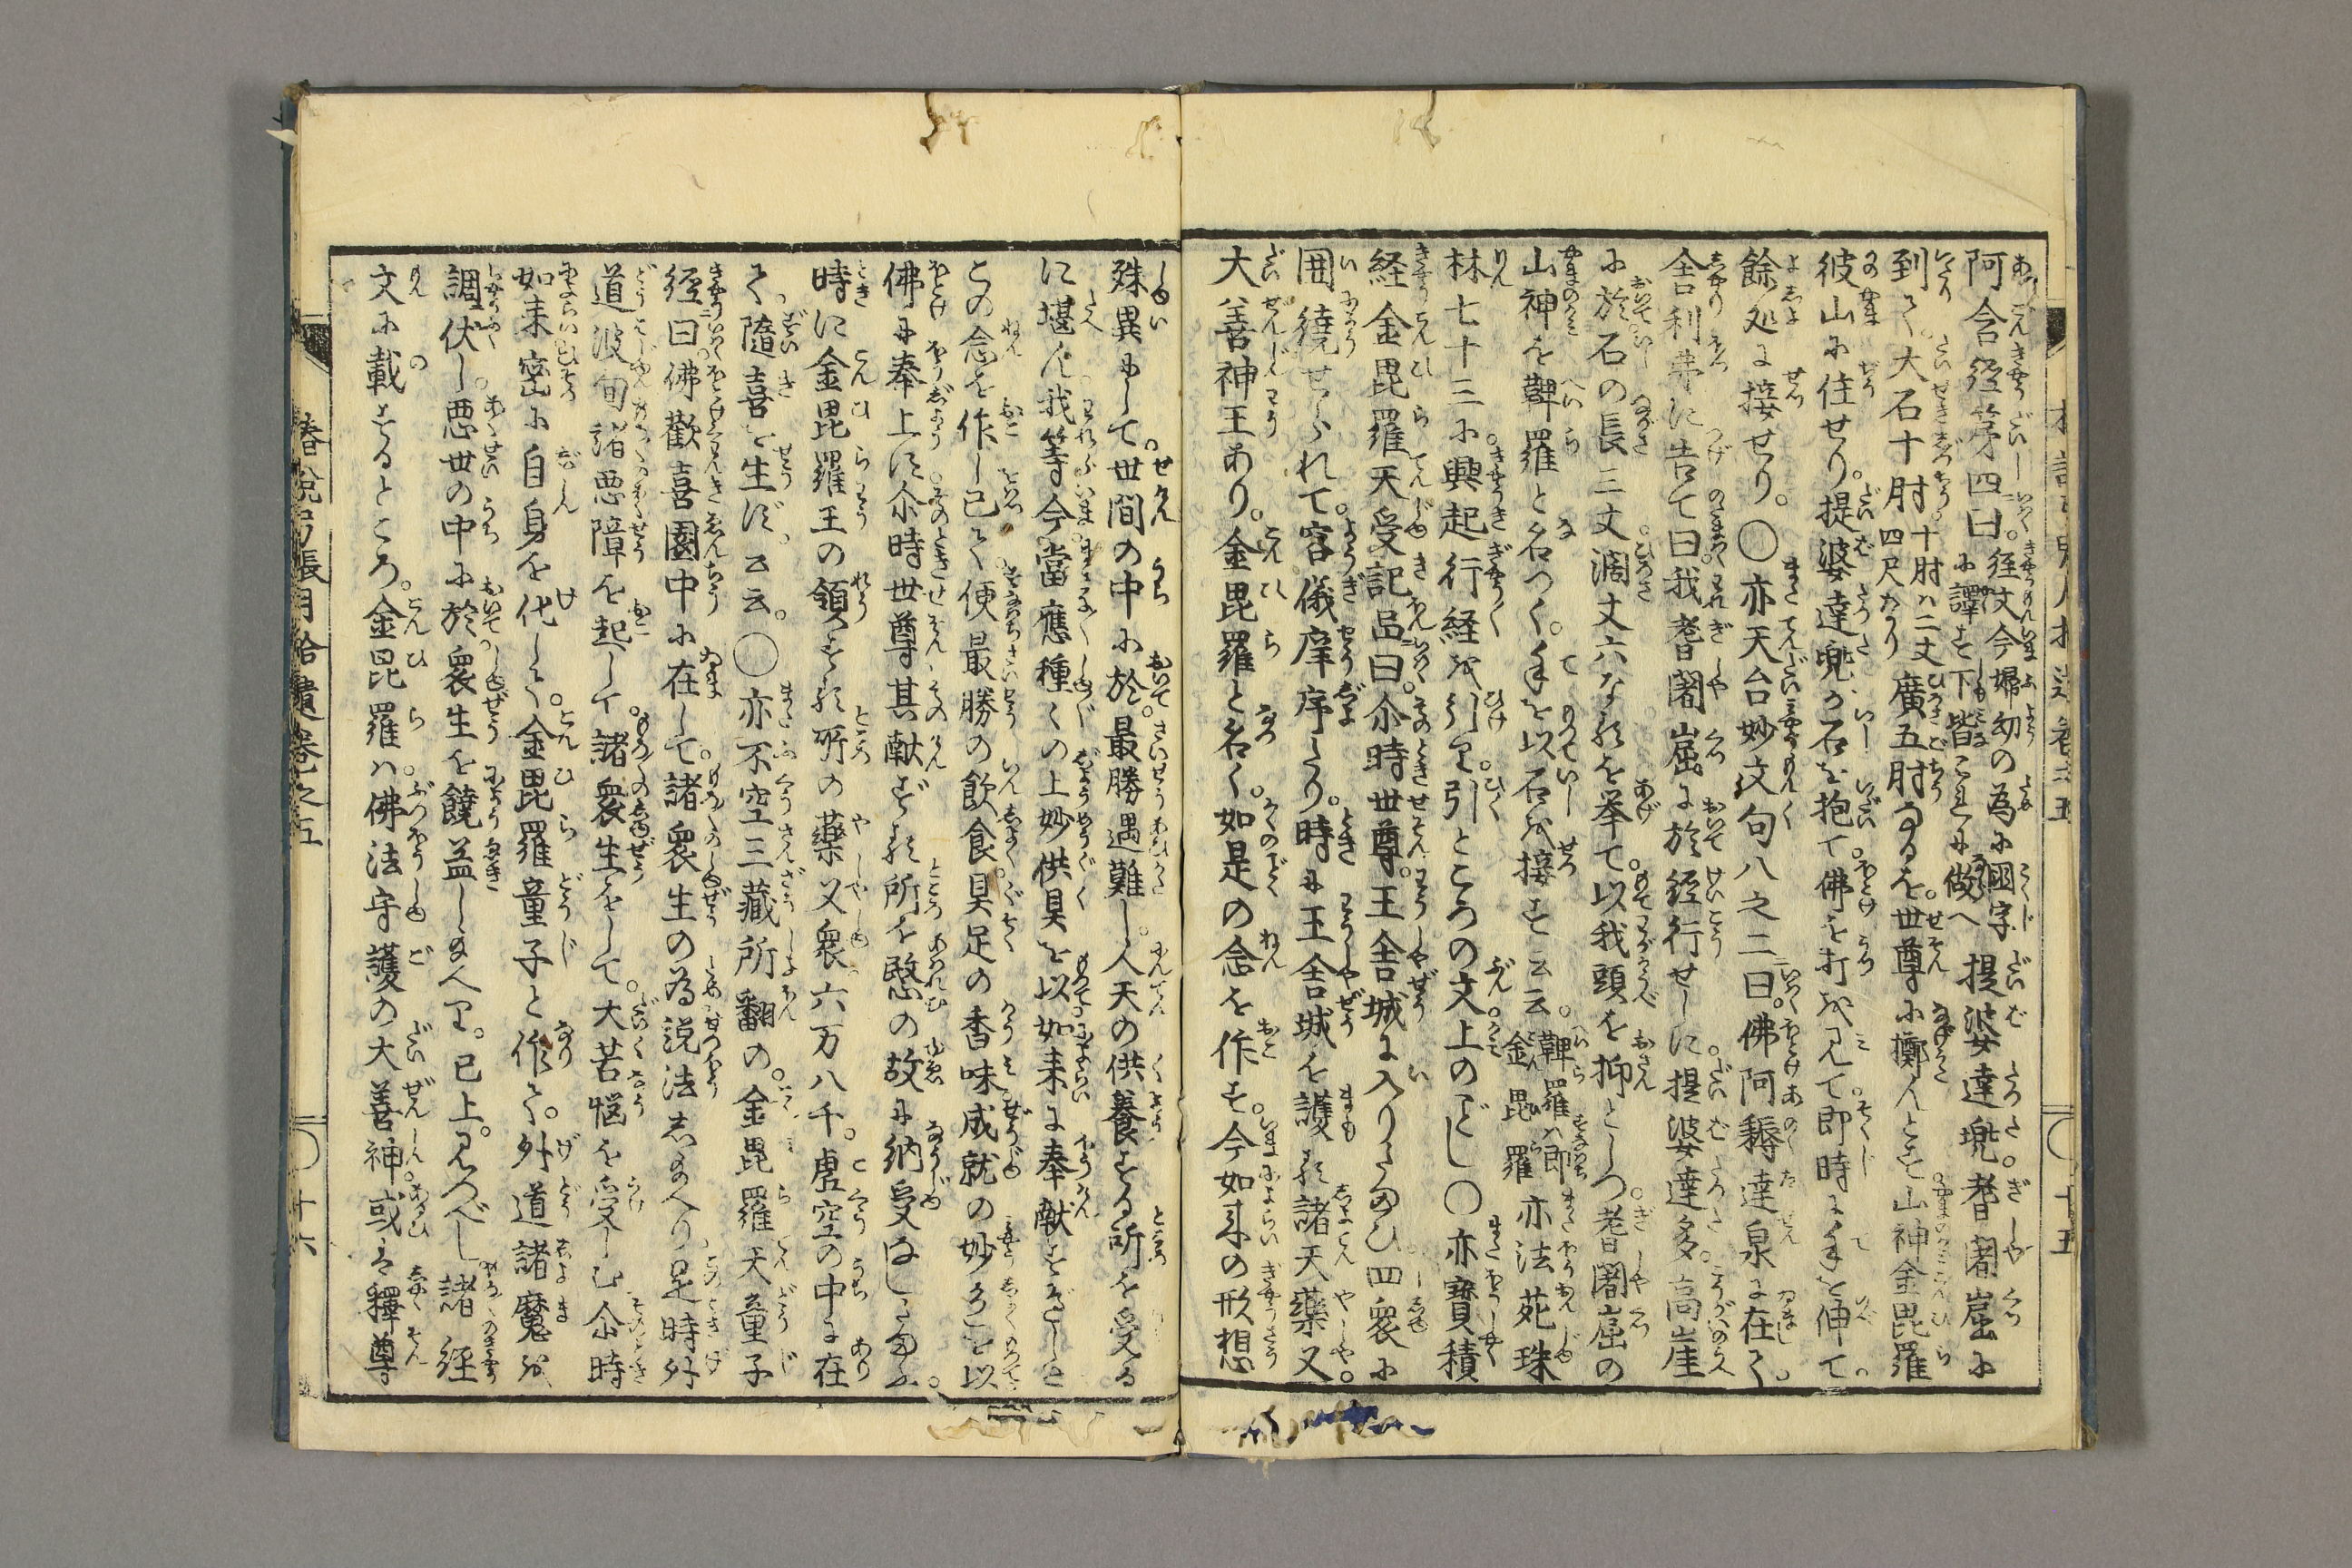 阿含經第四曰。経文今婦幼の為に國字に譯す下皆これに傚へ提婆達兜。耆闍崛に
到て。大石十肘十肘ハ二丈四尺カリ廣五肘なるを。世尊に擲んとす山神金毘羅
彼山に住せり。提婆達兜が石を抱て。佛を打を見て。即時に手を伸て。
餘処に接せり。〇亦天台妙文句八之二曰。佛阿耨達泉に在て。
舎利弗に告て曰。我耆闍崛に於経行せしに。提婆達多。高崖
に於石の長三丈。濶丈六なるを挙て。以我頭を抑としつ。耆闍崛の
山神を鞞羅と名つく。手を以石を接す云云。鞞羅ハ即金毘羅亦法苑珠
林七十三に興起行経を引り。引ところの文。上のごとし〇亦寶積
経金毘羅天受記品曰。尒時世尊。王舎城に入りたまひ。四衆に
囲繞せられて。容儀庠序たり。時に王舎城を護る諸天薬叉。
大善神王あり。金毘羅と名く。如是の念を作す。今如来の形想
殊異にして。世間の中に於。最勝遇難し。人天の供養する所を受る
に堪ん我等今。當應種〻の上妙供具を以如来に奉献すべしと
この念を作し已て便最勝の飲食。具足の香味成就の妙色を以
佛に奉上に尒時世尊其献ずる所を愍の故に納受ましたまふ。
時に金毘羅王の領する所の薬叉衆。六万八千。虚空の中に在
て。隨喜を生ず。云云。〇亦不空三藏所翻の。金毘羅天童子
經曰。佛歡喜園中に在して。諸衆生の為説法し給へり。是時外
道波旬諸悪障を起して。諸衆生をして。大苦悩を受しむ尒時
如来密に自身を化して。金毘羅童子と作て。外道諸魔を
調伏し。悪世の中に於。衆生を饒益し給へり。已上。見つべし。諸經
文に載するところ。金毘羅ハ。佛法守護の大善神。或は釋尊
椿説弓張月拾遺巻之五
〇十六
〇十五